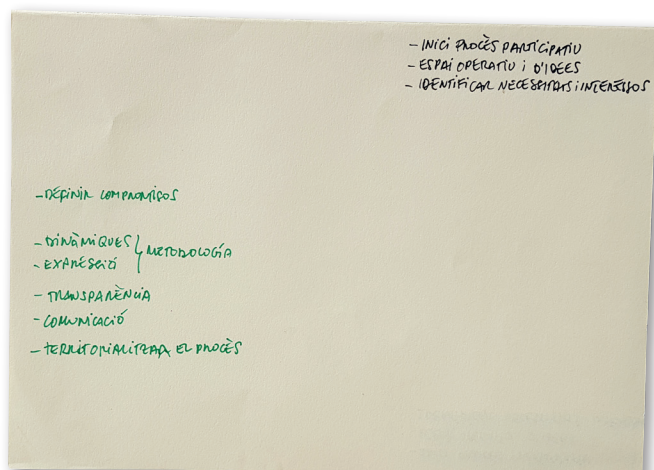 - INICI PROCÈS PARTICIPATIU
- ESPAI OPERATIU i D'IDEES
- IDENTIFICAR NECESSITATS i INTERESSOS
- DEFINIR COMPROMISOS
- DINÀMIQUES
- EXPRESSIÓ
METODOLOGÍA
- TRANSPARÈNCIA
- COMUNICACIÓ
- TERRITORIALITZAR EL PROCÈS